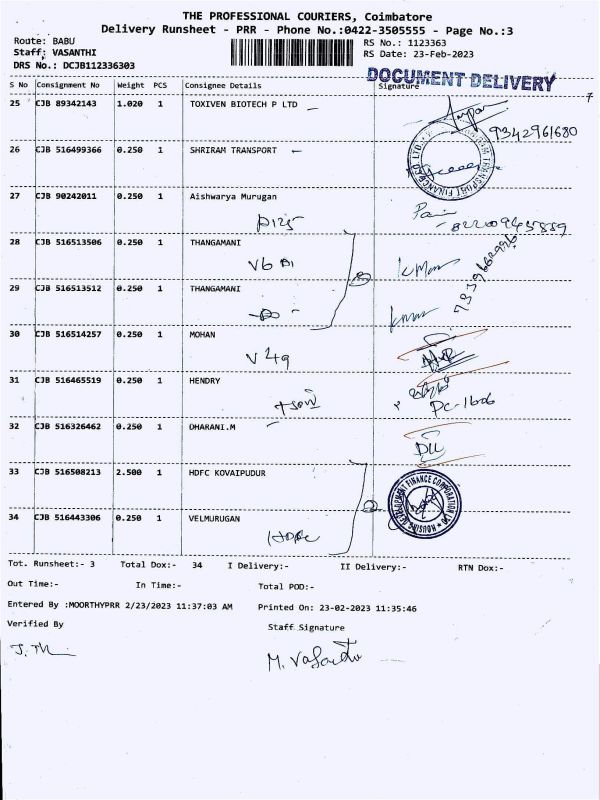 THE PROFESSIONAL COURIERS, Coimbatore
Delivery Runsheet - PRR - Phone No.:0422-3505555 - Page No.:3
Route: BABU
RS No.: 1123363
Staff: VASANTHI
RS Date: 23-Feb-2023
DRS No.: DCJB112336303
DOCUMENT DELIVERY
S No Consignment No Weight PCS Consignee Details Signature
25 CJB 89342143 1.020 1 TOXIVEN BIOTECH P LTD
9342961680
26 CJB 516499366 0.250 1 SHRIRAM TRANSPORT
27 CJB 90242011 0.250 1 Aishwarya Murugan
P125
28 CJB 516513506 0.250 1 THANGAMANI
V6 A1
29 CJB 516513512 0.250 1 THANGAMANI
30 CJB 516514257 0.250 1 MOHAN
V 49
31 CJB 516465519 0.250 1 HENDRY
PC-1606
32 CJB 516326462 0.250 1 DHARANI.M
33 CJB 516508213 2.500 1 HDFC KOVAIPUDUR
HOUSING DEVELOPMENT FINANCE CORPORATION LTD
34 CJB 516443306 0.250 1 VELMURUGAN
Tot. Runsheet:- 3 Total Dox:- 34 I Delivery:- II Delivery:- RTN Dox:-
Out Time:- In Time:- Total POD:-
Entered By :MOORTHYPRR 2/23/2023 11:37:03 AM Printed On: 23-02-2023 11:35:46
Verified By Staff Signature
M. Vasanthi